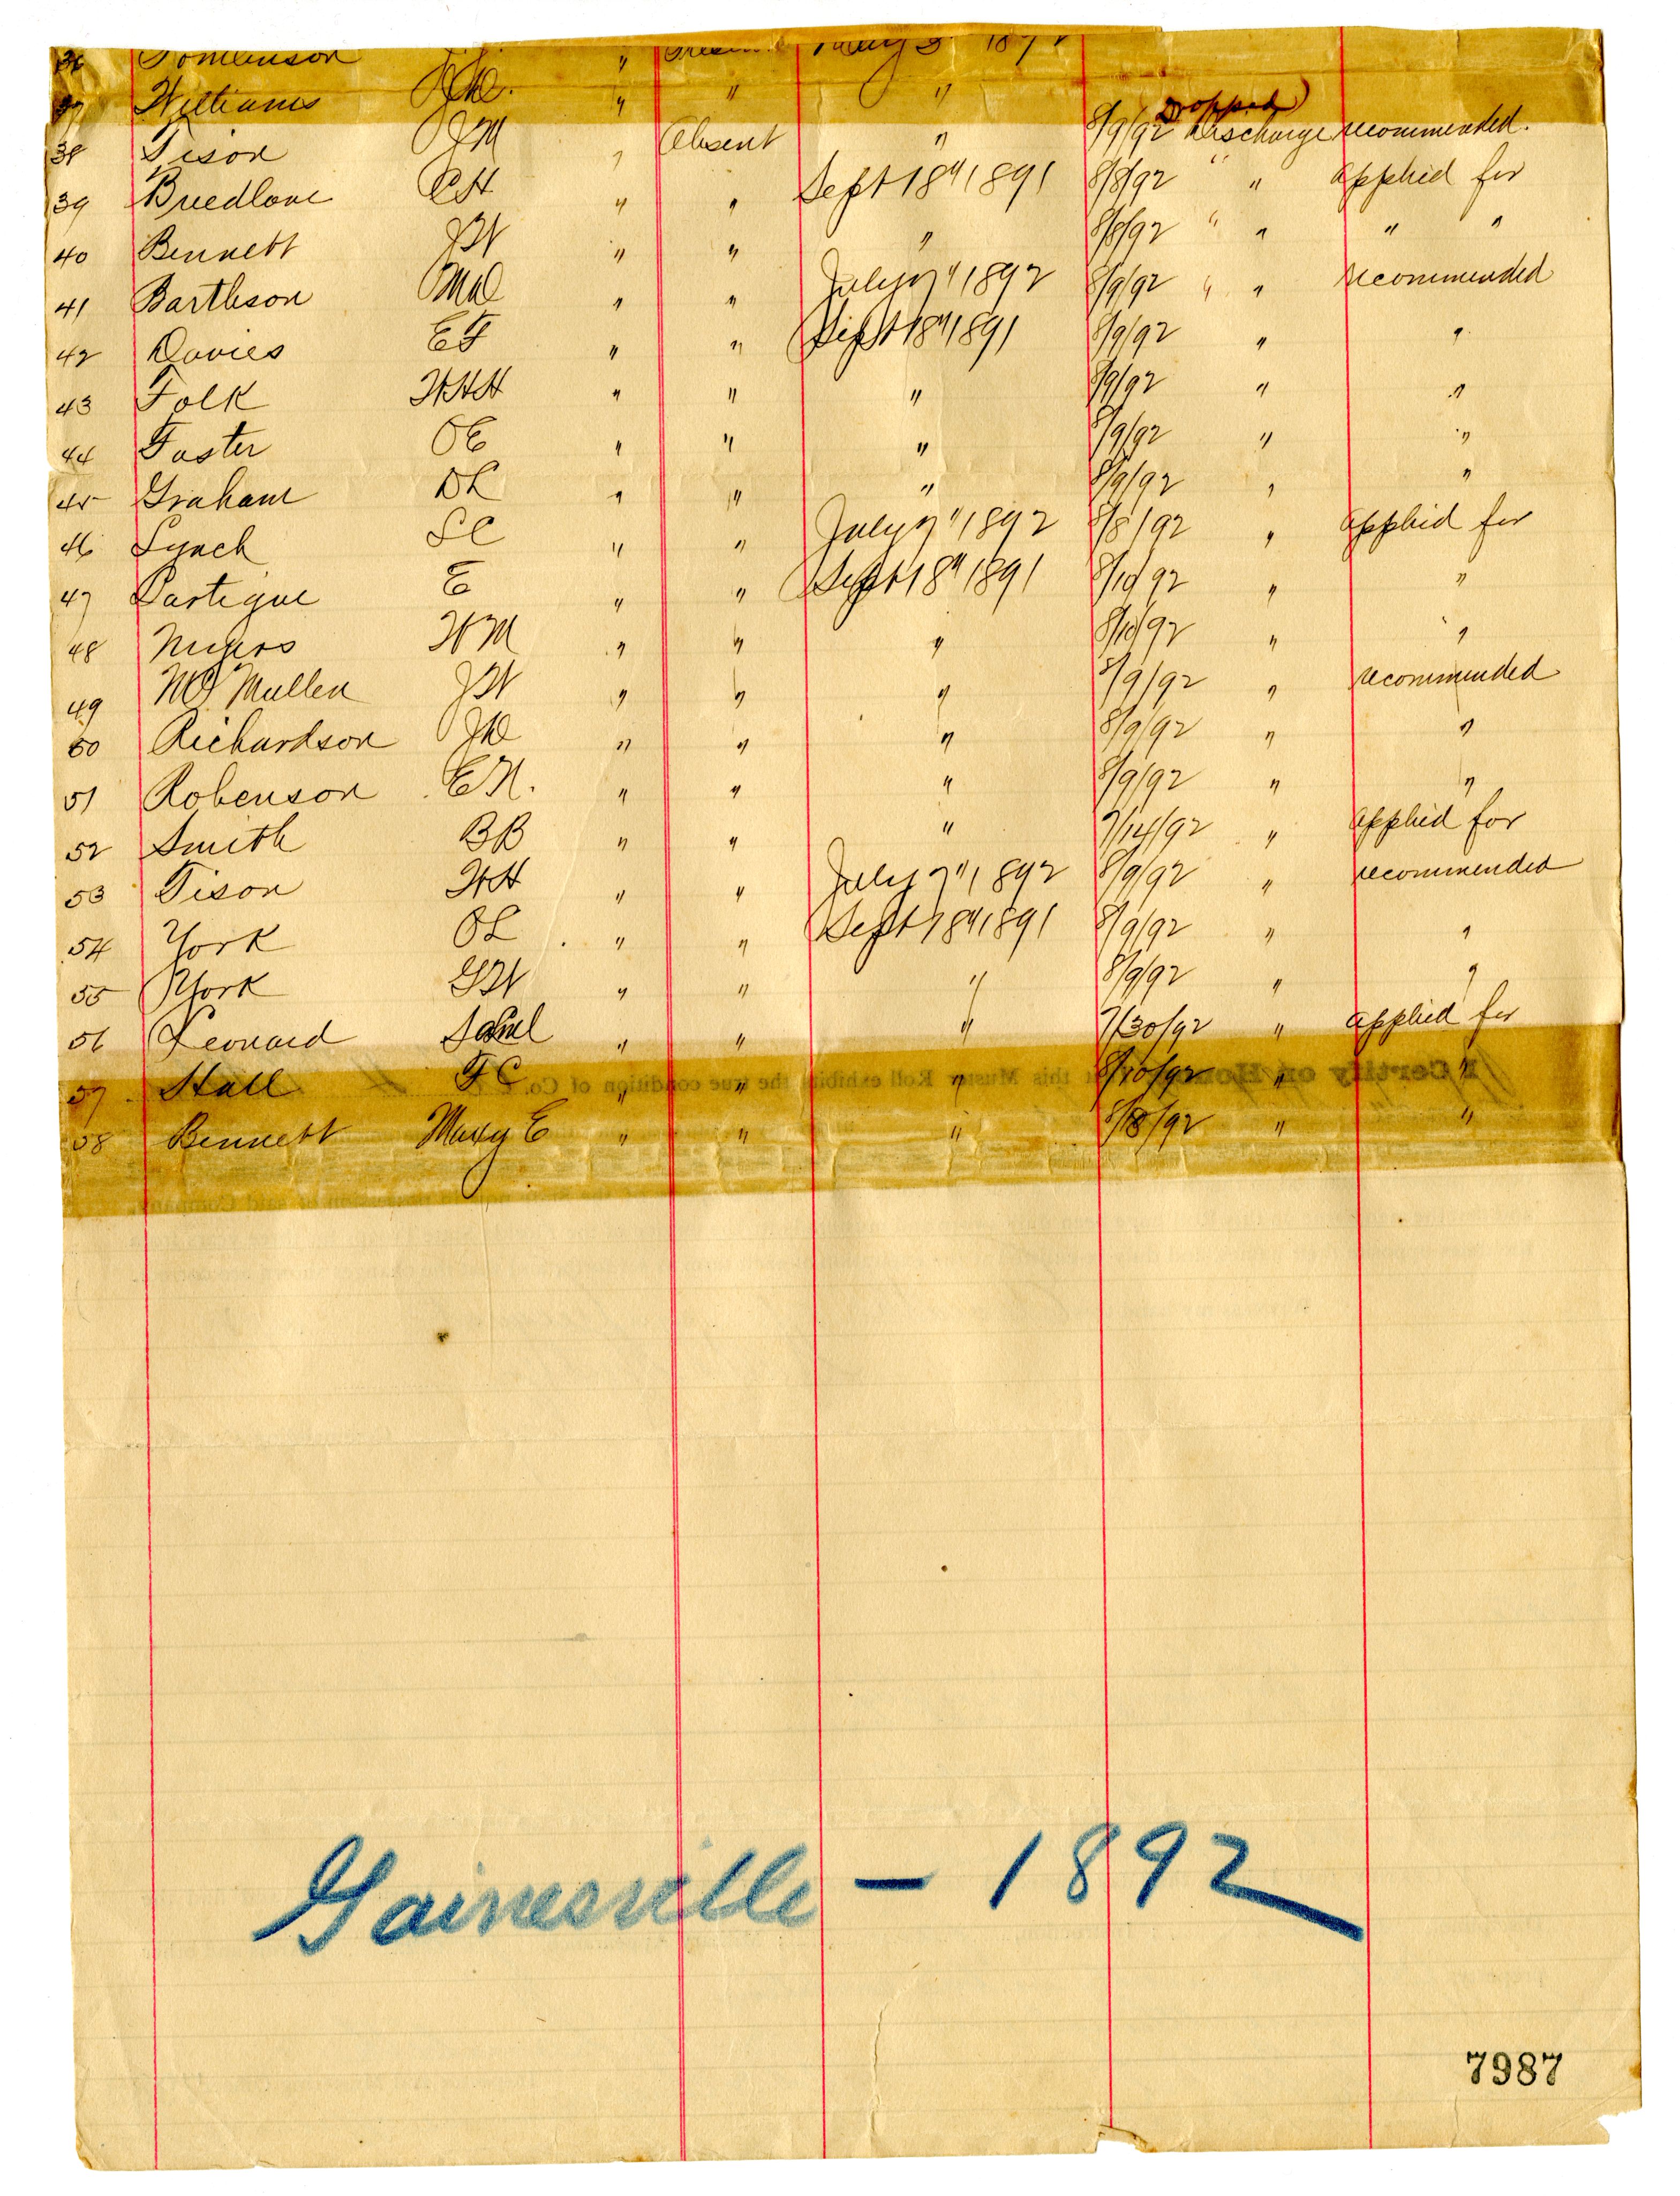 36 Tomlinson J.J. " Present May 3 1892
37 Williams J.W. " " "
Dropped
38 Tison JM " Absent " 8/9/92 Discharge recommended.
39 Breedlove CH " " Sept 18" 1891 8/8/92 " " applied for
40 Bennett JW " " " 8/8/92 " " " "
41 Bartleson MW " " July 7" 1892 8/9/92 " " recommended
42 Davies EF " " Sept 18" 1891 8/9/92 " "
43 Folk WHH " " " 8/9/92 " "
44 Foster OE " " " 8/9/92 " "
45 Graham DL " " " 8/9/92 " "
46 Lynch SC " " July 7" 1892 8/8/92 " applied for
47 Lartigue E " " Sept 18" 1891 8/10/92 " "
48 WM " " " 8/10/92 " "
49 McMullen JW " " " 8/9/92 " recommended
50 Richardson JW " " " 8/9/92 " "
51 Robenson EN. " " " 8/9/92 " "
52 Smith BB " " " 7/14/92 " applied for
53 Tison WH " " July 7" 1892 8/9/92 " recommended
54 York OL " " Sept 18" 1891 8/9/92 " "
55 York GW " " " 8/9/92 " "
56 Leonard Saml " " " 7/30/92 " applied for
57 Hall FC " " " 8/10/92 " "
58 Bennett Maxy E " " " 8/18/92 " "
Gainesville – 1892
7987